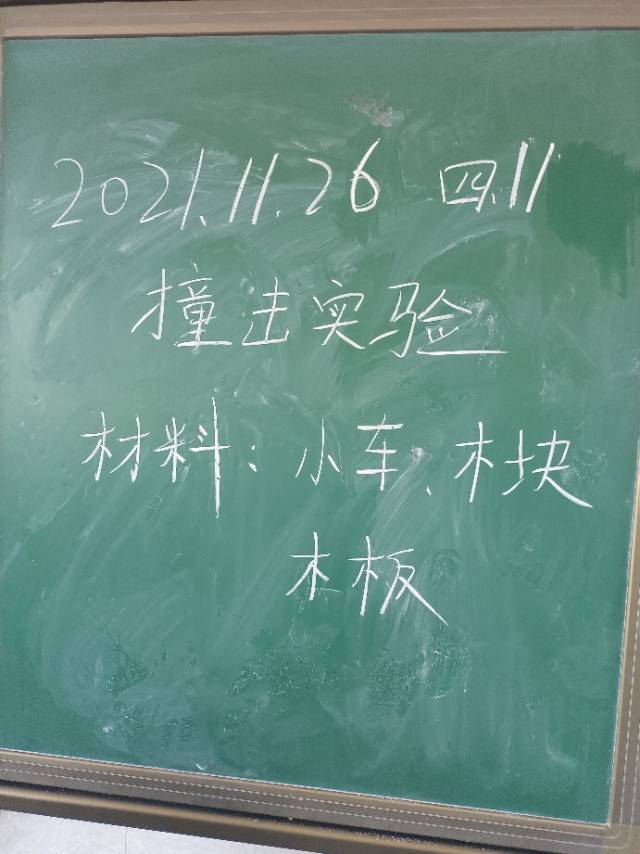 2021.11.26 四.11
撞击实验
材料：小车、木块
木板